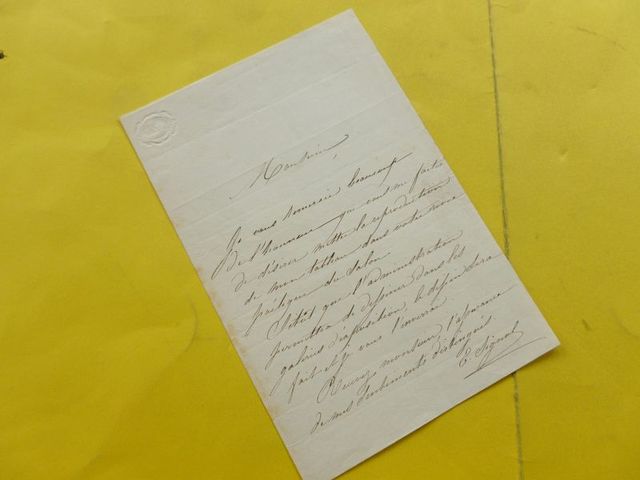 Monsieur,
Je vous remercie beaucoup
de l'honneur que vous me faites
de désirer mettre la reproduction
de mon tableau dans votre revue
poëtique du Salon
Sitôt que l'administration
permettra de dessiner dans les
galeries d'exposition, le dessin sera
fait et je vous l'enverrai
Recevez monsieur l'assurance
de mes sentiments distingués
E. Signol